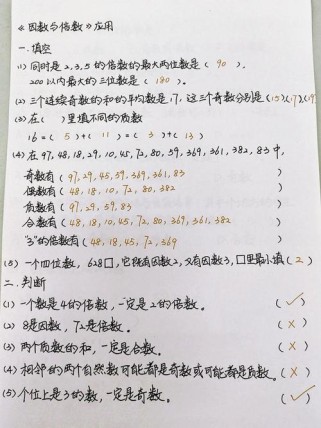 《因数与倍数》应用
一.填空
(1) 同时是2,3,5的倍数的最大两位数是( 90 ).
200以内最大的三位数是( 180 ).
(2) 三个连续奇数的和的平均数是17,这三个奇数分别是(15)(17)(19)
(3) 在( )里填不同的质数
16=( 5 )+( 11 )=( 3 )+( 13 )
(4) 在97,48,18,29,10,45,72,80,59,369,361,382,83中,
奇数有( 97,29,45,59,369,361,83 )
偶数有( 48,18,10,72,80,382 )
质数有( 97,29,59,83 )
合数有( 48,18,10,45,72,80,369,361,382 )
"3"的倍数有( 48,18,45,72,369 )
(5) 一个四位数,628口,它既有因数2,又有因数3,口里最小填( 2 )
二.判断
(1) 一个数是4的倍数,一定是2的倍数. ( ✓ )
(2) 8是因数,72是倍数. ( × )
(3) 两个质数的和,一定是合数. ( × )
(4) 相邻的两个自然数可能都是奇数或可能都是质数. ( × )
(5) 个位上是3的数,一定是奇数. ( ✓ )